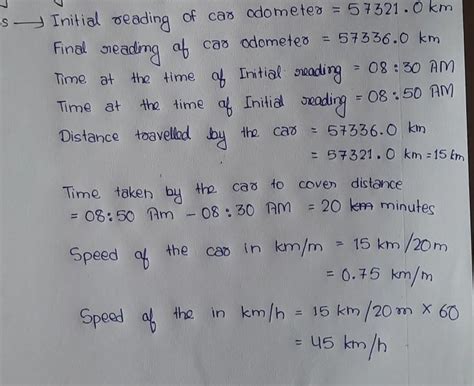 s → Initial reading of car odometer = 57321.0 km
Final reading of car odometer = 57336.0 km
Time at the time of Initial reading = 08:30 AM
Time at the time of Initial reading = 08:50 AM
Distance travelled by the car = 57336.0 km
= 57321.0 km = 15 km
Time taken by the car to cover distance
= 08:50 Am - 08:30 AM = 20 km minutes
Speed of the car in km/m = 15 km/20m
= 0.75 km/m
Speed of the in km/h = 15 km/20m × 60
= 45 km/h